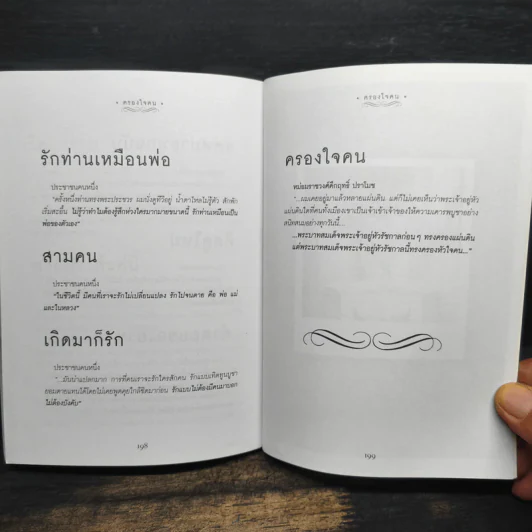 • ครองใจคน •
รักท่านเหมือนพ่อ
ประชาชนคนหนึ่ง
"ครั้งหนึ่งท่านทรงพระประชวร ผมนั่งดูทีวีอยู่ น้ำตาไหลไม่รู้ตัว สักพัก
เริ่มสะอื้น ไม่รู้ว่าทำไมต้องรู้สึกห่วงใครมากมายขนาดนี้ รักท่านเหมือนเป็น
พ่อของตัวเอง"
สามคน
ประชาชนคนหนึ่ง
"ในชีวิตนี้ มีคนที่เราจะรักไม่เปลี่ยนแปลง รักไปจนตาย คือ พ่อ แม่
และในหลวง"
เกิดมาก็รัก
ประชาชนคนหนึ่ง
"...มันน่าแปลกมาก การที่คนเราจะรักใครสักคน รักแบบเทิดทูนบูชา
ยอมตายแทนได้โดยไม่เคยพูดคุยใกล้ชิดมาก่อน รักแบบไม่ต้องมีคนมาบอก
ไม่ต้องบังคับ"
198
• ครองใจคน •
ครองใจคน
หม่อมราชวงศ์คึกฤทธิ์ ปราโมช
"...ผมเคยอยู่มาแล้วหลายแผ่นดิน แต่ก็ไม่เคยเห็นว่าพระเจ้าอยู่หัว
แผ่นดินใดที่คนทั้งเมืองเขาเป็นเจ้าเข้าเจ้าของให้ความเคารพบูชาอย่าง
สนิทสนมอย่างทุกวันนี้...
...พระบาทสมเด็จพระเจ้าอยู่หัวรัชกาลก่อน ๆ ทรงครองแผ่นดิน
แต่พระบาทสมเด็จพระเจ้าอยู่หัวรัชกาลนี้ทรงครองหัวใจคน..."
199